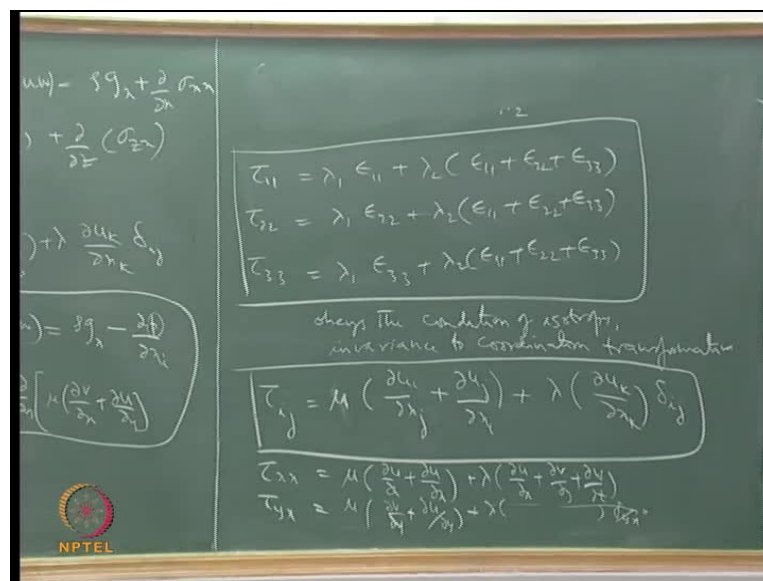 uw) = ρg_x + ∂/∂x σ_xx
) + ∂/∂z (σ_zx)
) + λ ∂u_k/∂x_k δ_ij
w) = ρg_x − ∂p/∂x_i
∂/∂x [μ(∂v/∂x + ∂u/∂y)]
τ_11 = λ_1 ε_11 + λ_2 (ε_11 + ε_22 + ε_33)
τ_22 = λ_1 ε_22 + λ_2 (ε_11 + ε_22 + ε_33)
τ_33 = λ_1 ε_33 + λ_2 (ε_11 + ε_22 + ε_33)
obeys the condition of isotropy,
invariance to coordination transformation
τ_ij = μ (∂u_i/∂x_j + ∂u_j/∂x_i) + λ (∂u_k/∂x_k) δ_ij
τ_xx = μ (∂u/∂x + ∂u/∂x) + λ (∂u/∂x + ∂v/∂y + ∂w/∂z)
τ_yx = μ (∂v/∂x + ∂u/∂y) + λ ( ) δ_yx
NPTEL